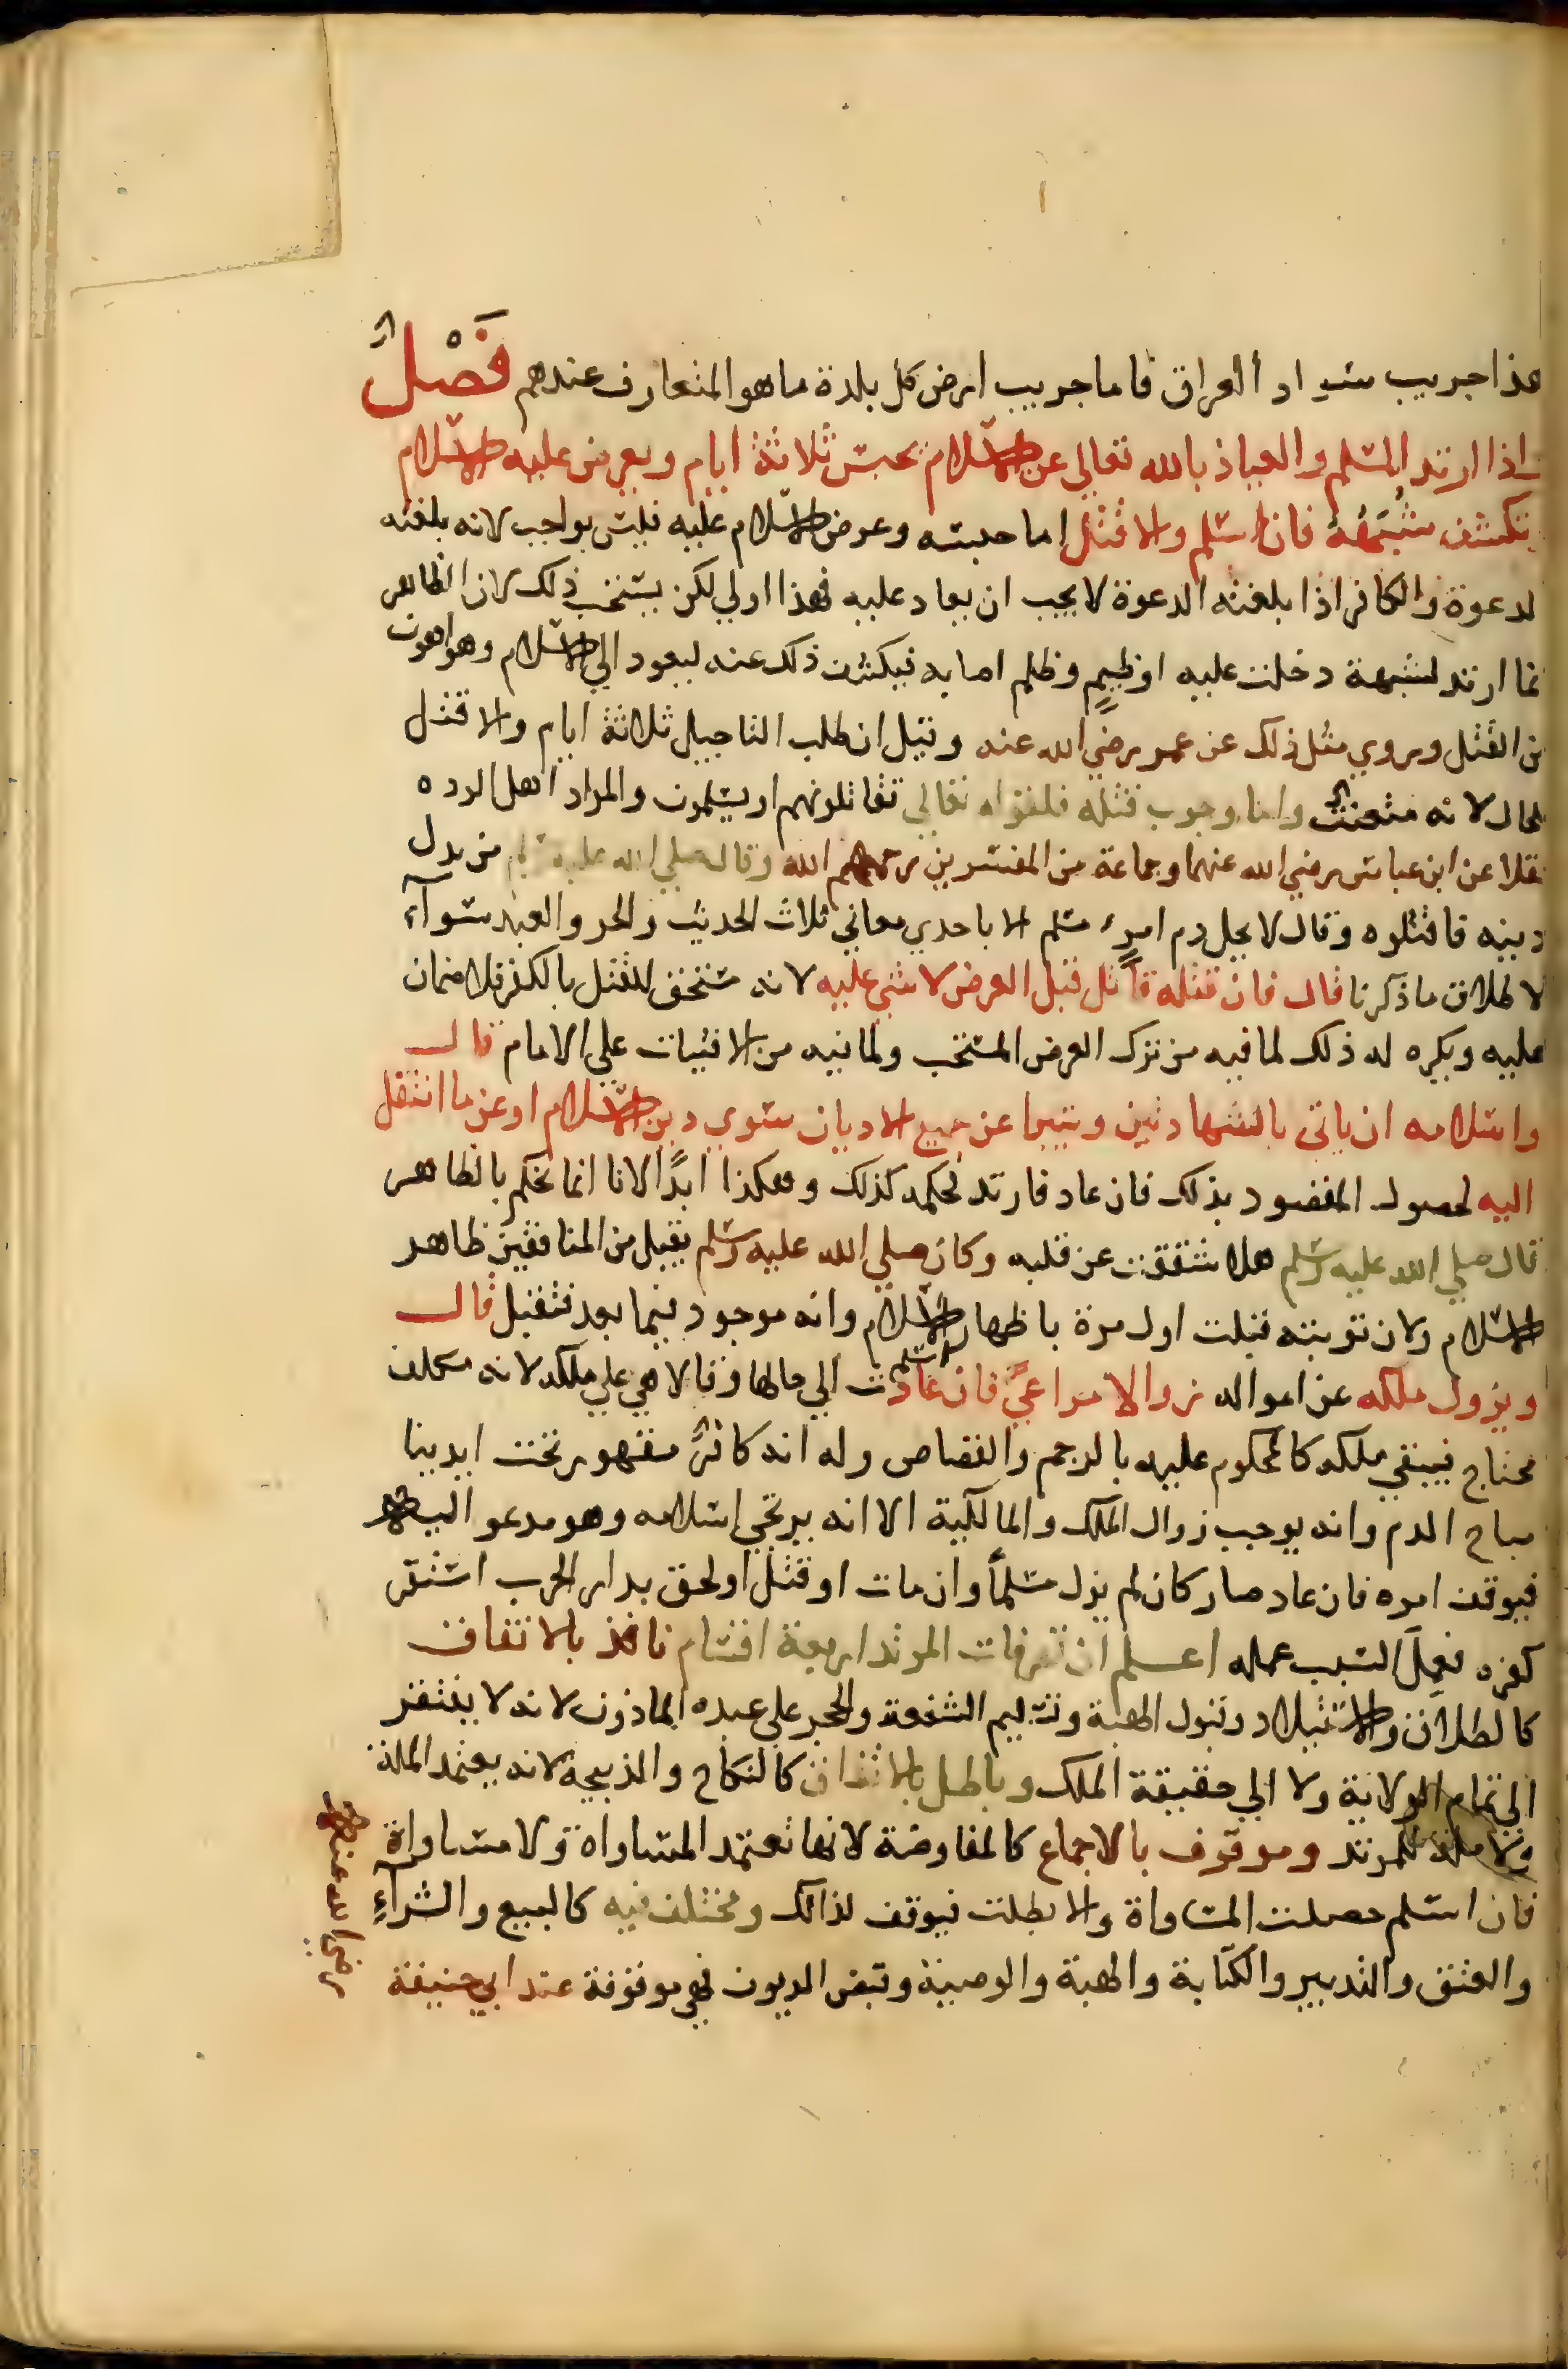 هذا جريب سواد العراق فاما جريب ارض كل بلدة ما هو المتعارف عندهم فَصْلٌ
اذا ارتد المسلم والعياذ بالله تعالي عن الاسلام يحبس ثلاثة ايام ويعرض عليه الاسلام
وتكشف شبهته فان اسلم والا قتل اما حبسه وعرض الاسلام عليه فليس بواجب لانه بلغته
لدعوة والكافر اذا بلغته الدعوة لا يجب ان يعاد عليه فهذا اولي لكن يستحب ذلك لان الظاهر
نما ارتد لشبهة دخلت عليه او ظيم وظلم اصابه فيكشف ذلك عنه ليعود الي الاسلام وهو اهون
من القتل وروي مثل ذلك عن عمر رضي الله عنه وقيل ان طلب التاجيل ثلاثة ايام والا قتل
للحال لانه متعنت واما وجوب قتله فلقوله تعالي تقاتلونهم او يسلمون والمراد اهل الرده
نقلا عن ابن عباس رضي الله عنهما وجماعة من المفسرين رحمهم الله وقال صلي الله عليه وسلم من بدل
دينه فاقتلوه وقال لا يحل دم امرء مسلم الا باحدي معاني ثلاث الحديث والحر والعبد سوآء
لاطلاق ما ذكرنا قال فان قتله قاتل قبل العرض لا شي عليه لانه مستحق للقتل بالكفر فلا ضمان
عليه ويكره له ذلك لما فيه من ترك العرض المستحب ولما فيه من الافتيات علي الامام قال
واسلامه ان ياتي بالشهادتين ويتبرا عن جميع الاديان سوي دين الاسلام او عن ما انتقل
اليه لحصول المقصود بذلك فان عاد فارتد فحكمه كذلك وهكذا ابدًا لانا انما نحكم بالظاهر
قال صلي الله عليه وسلم هلا شققت عن قلبه وكان صلي الله عليه وسلم يقبل من المنافقين ظاهر
الاسلام ولان توبته قبلت اول مرة باظهار الاسلام وانه موجود فيما بعد فتقبل قال
ويزول ملكه عن امواله زوالا مراعيً فان اسلم عادت الي حالها وقالا هي علي ملكه لانه مكلف
محتاج فيبقي ملكه كالمحكوم عليه بالرجم والقصاص وله انه كافرٌ مقهور تحت ايدينا
مباح الدم وانه يوجب زوال الملك والمالكية الا انه يرتجي اسلامه وهو مدعو اليه
فيوقف امره فان عاد صار كان لم يزل مسلماً وان مات او قتل او لحق بدار الحرب استقر
كفره فعمل السبب عمله اعلم ان تصرفات المرتد اربعة اقسام نافذ بالاتفاق
كالطلاق والاستيلاد وقبول الهبة وتسليم الشفعة والحجر علي عبده الماذون لانه لا يفتقر
الي تمام الولاية ولا الي حقيقة الملك وباطل بالاتفاق كالنكاح والذبيحة لانه يعتمد الملة
ولا ملة للمرتد وموقوف بالاجماع كالمفاوضة لانها تعتمد المساواة ولا مساواة
فان اسلم حصلت المساواة والا بطلت فيوقف لذالك ومختلف فيه كالبيع والشرآءِ
والعتق والتدبير والكتابة والهبة والوصية وقبض الديون فهي موقوفة عند ابي حنيفة
رضي الله عنه